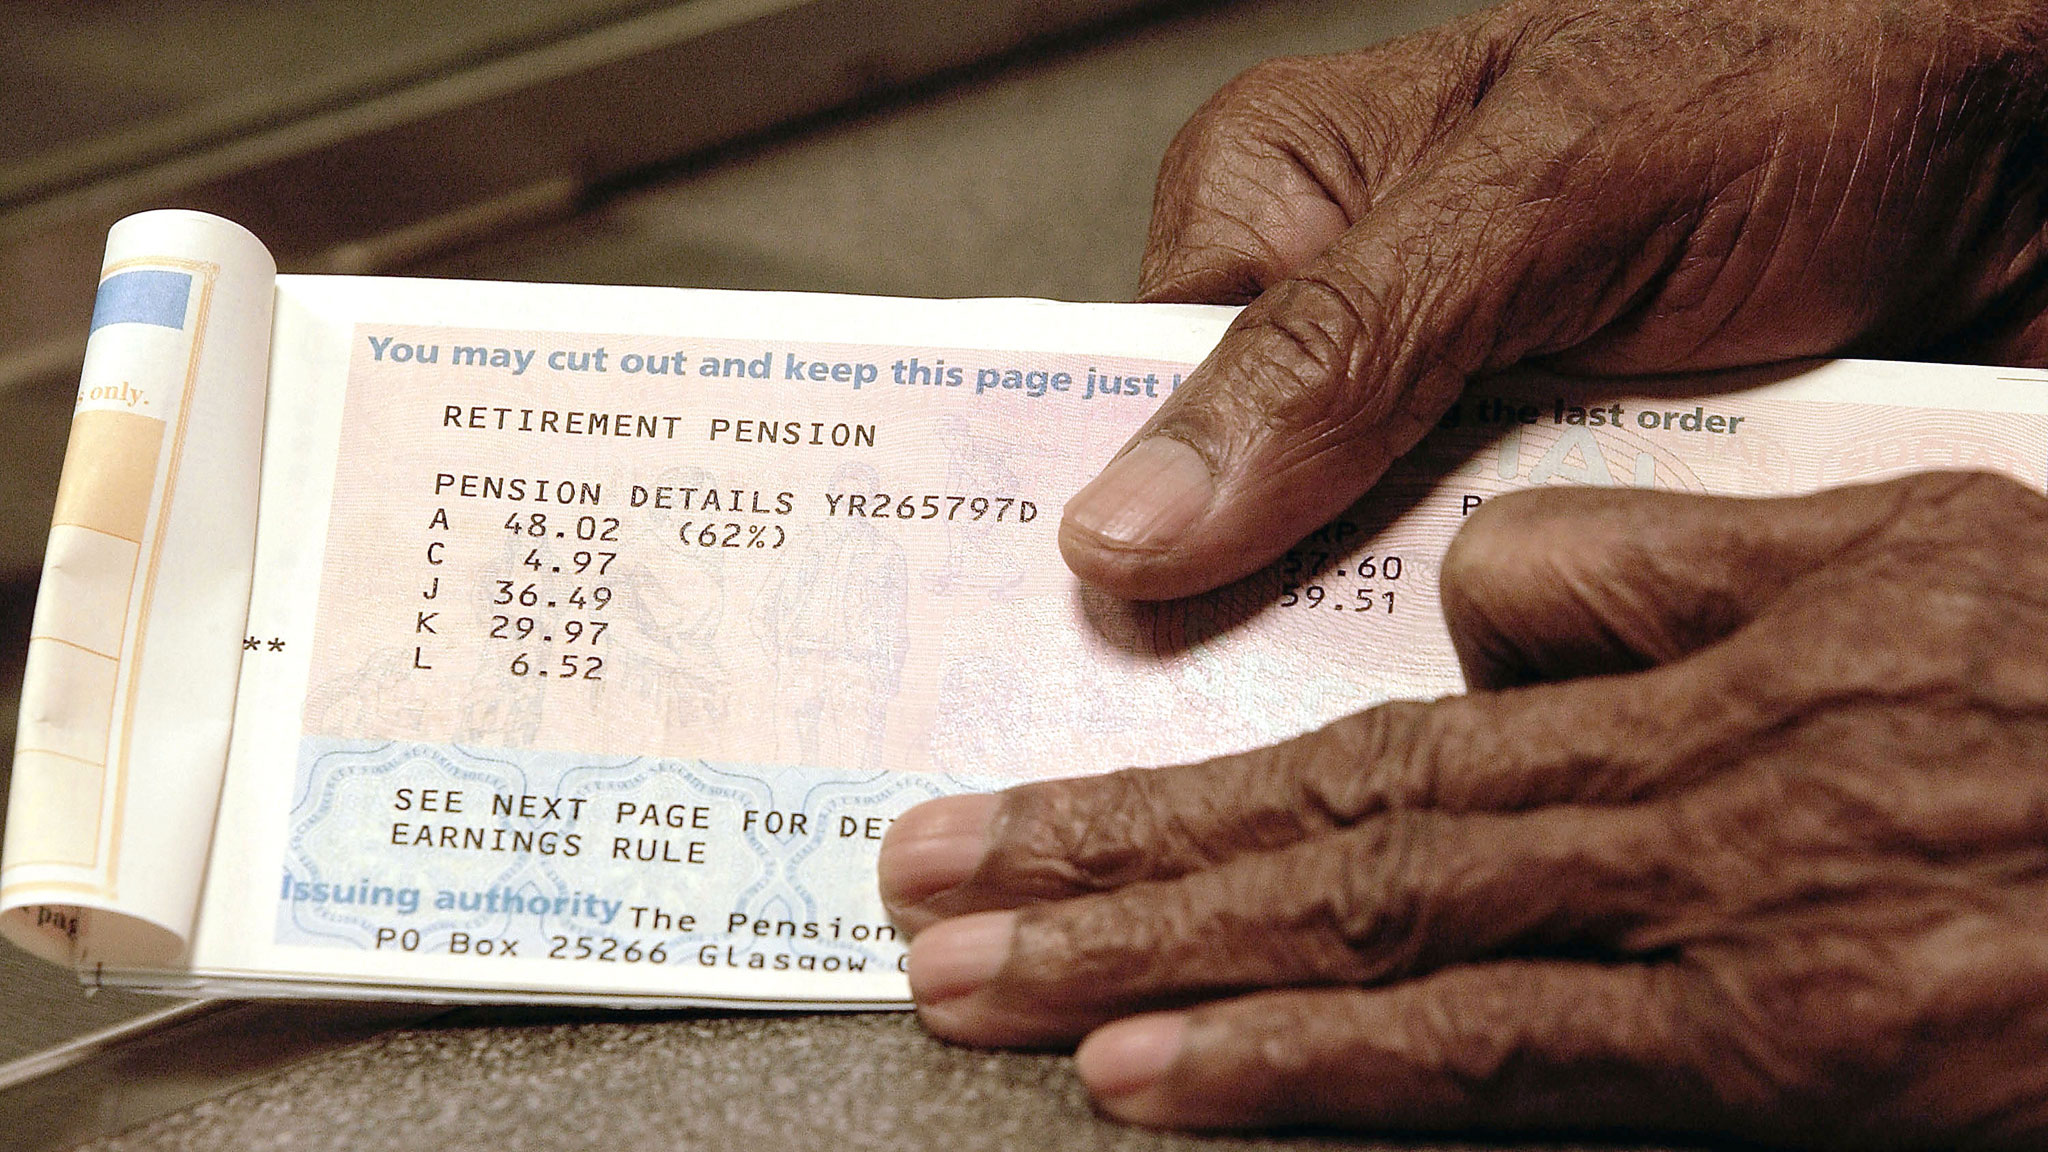 only.
You may cut out and keep this page just the last order
RETIREMENT PENSION
PENSION DETAILS YR265797D
A 48.02 (62%)
C 4.97 57.60
J 36.49 59.51
K 29.97
**
L 6.52
SEE NEXT PAGE FOR
EARNINGS RULE
Issuing authority The Pension
PO Box 25266 Glasgow